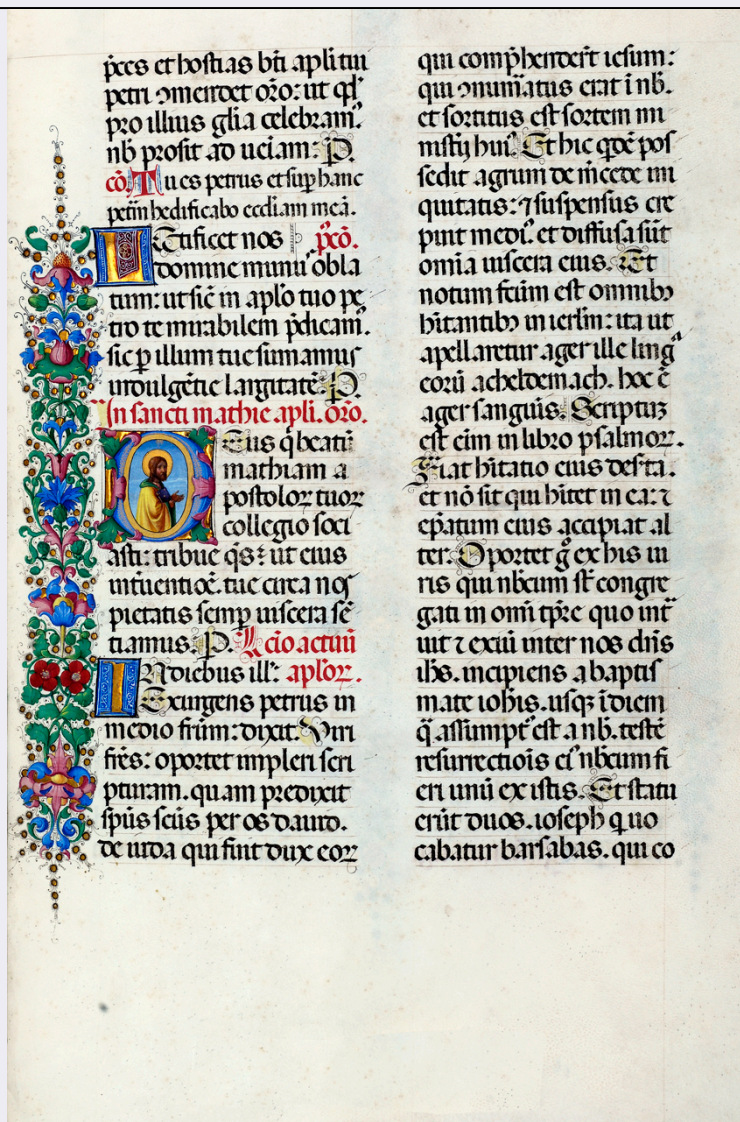 p̄ces et hostias bti apli tui
petri ꝯmendet oro: ut qd̓
pro illius glia celebram᷒.
nb̄ prosit ad ueiam: P.
cō. Tu es petrus et sup hanc
petm̄ hedificabo eccliam meā.
Lectificet nos p̄cō.
domine munus obla
tum: ut sic̄ in aplo tuo pe
tro te mirabilem p̄dicam᷒.
sic p illum tue sumamus
indulgētie largitatē. P.
In sancti mathie apli. oro.
Deus q̄ beatū
mathiam a
postoloꝝ tuoꝝ
collegio soci
asti: tribue q̄s: ut eius
int̄uentiōe. tue circa nos
pietatis semp uiscera sē
tiamus. P. Lcio actuū
IN diebus ill̄: aploꝝ.
Exurgens petrus in
medio frūm: dixit. Viri
fr̄es: oportet impleri scri
pturam. quam predixit
spūs scūs per os dauid.
de iuda qui fuit dux eoꝝ
qui comp̄henderūt iesum:
qui ꝯnumiatus erat ī nb̄.
et sortitus est sortem mi
nistij hui᷒. Et hic qdē pos
sedit agrum de m̄cede ini
quitatis: ⁊ suspensus cre
puit medi᷒. et diffusa sūt
omīa uiscera eius. Et
notum fcūm est omnibꝫ
hītantibꝫ in ierlm: ita ut
apellaretur ager ille ling
eorū acheldemach. hoc ē
ager sanguis. Scriptuꝫ
est eīm in libro psalmoꝝ.
Fiat hītatio eius des̄ta.
et nō sit qui hītet in ea: ⁊
ep̄atum eius accipiat al
ter. Oportet g̊ ex his ui
ris qui nb̄cum st̄ congre
gati in omī tp̄re quo int̄
uit ⁊ exiuī inter nos dn̄s
ih̄s. incipiens a baptis
mate ioh̄is. usqꝫ ī diem
q̄ assumpt᷒ est a nb̄. testē
resurrectiōis ei᷒ nb̄cum fi
eri unū ex istis. Et statu
erūt duos. ioseph q̇ uo
cabatur barsabas. qui co